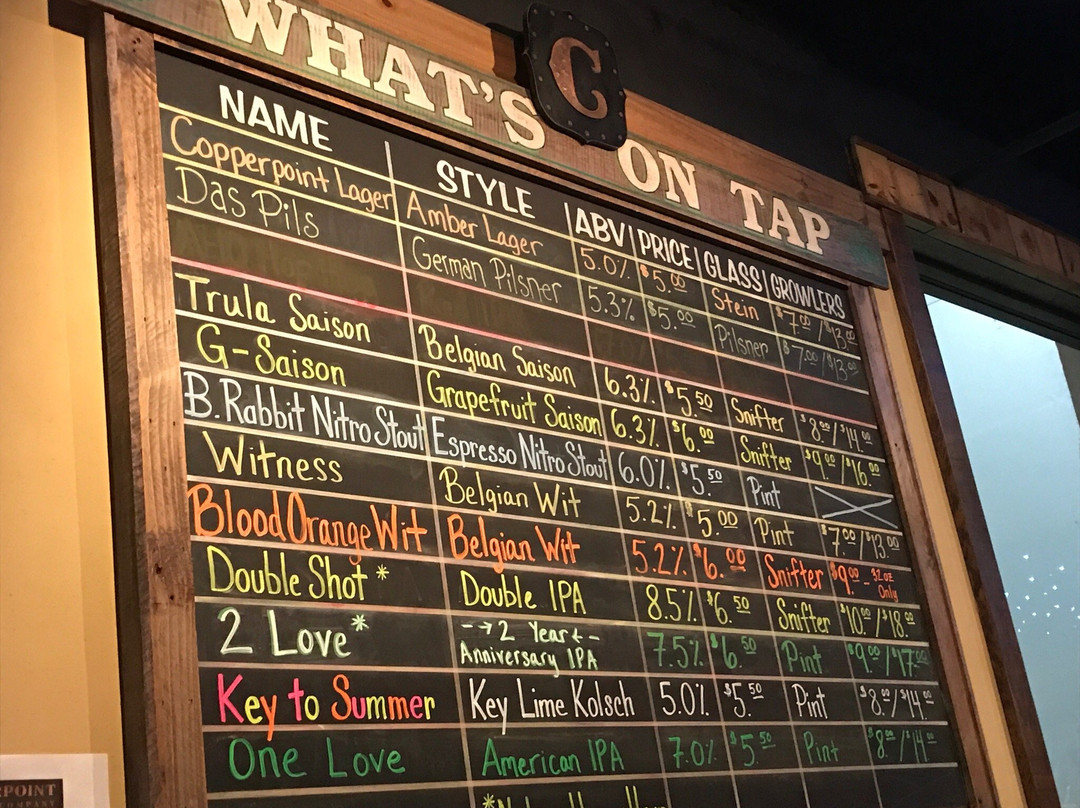 WHAT'S C ON TAP
NAME | STYLE | ABV | PRICE | GLASS | GROWLERS
Copperpoint Lager Amber Lager 5.0% $5.00 Stein $7.00/$13.00
Das Pils German Pilsner 5.3% $5.00 Pilsner $7.00/$13.00
Trula Saison Belgian Saison 6.3% $5.50 Snifter $8.00/$14.00
G-Saison Grapefruit Saison 6.3% $6.00 Snifter $9.00/$16.00
B.Rabbit Nitro Stout Espresso Nitro Stout 6.0% $5.50 Pint
Witness Belgian Wit 5.2% $5.00 Pint $7.00/$13.00
Blood Orange Wit Belgian Wit 5.2% $6.00 Snifter $9.00 - 32oz Only
Double Shot * Double IPA 8.5% $6.50 Snifter $10.00/$18.00
2 Love * 2 Year Anniversary IPA 7.5% $6.50 Pint $9.00/$17.00
Key to Summer Key Lime Kolsch 5.0% $5.50 Pint $8.00/$14.00
One Love American IPA 7.0% $5.50 Pint $8.00/$14.00